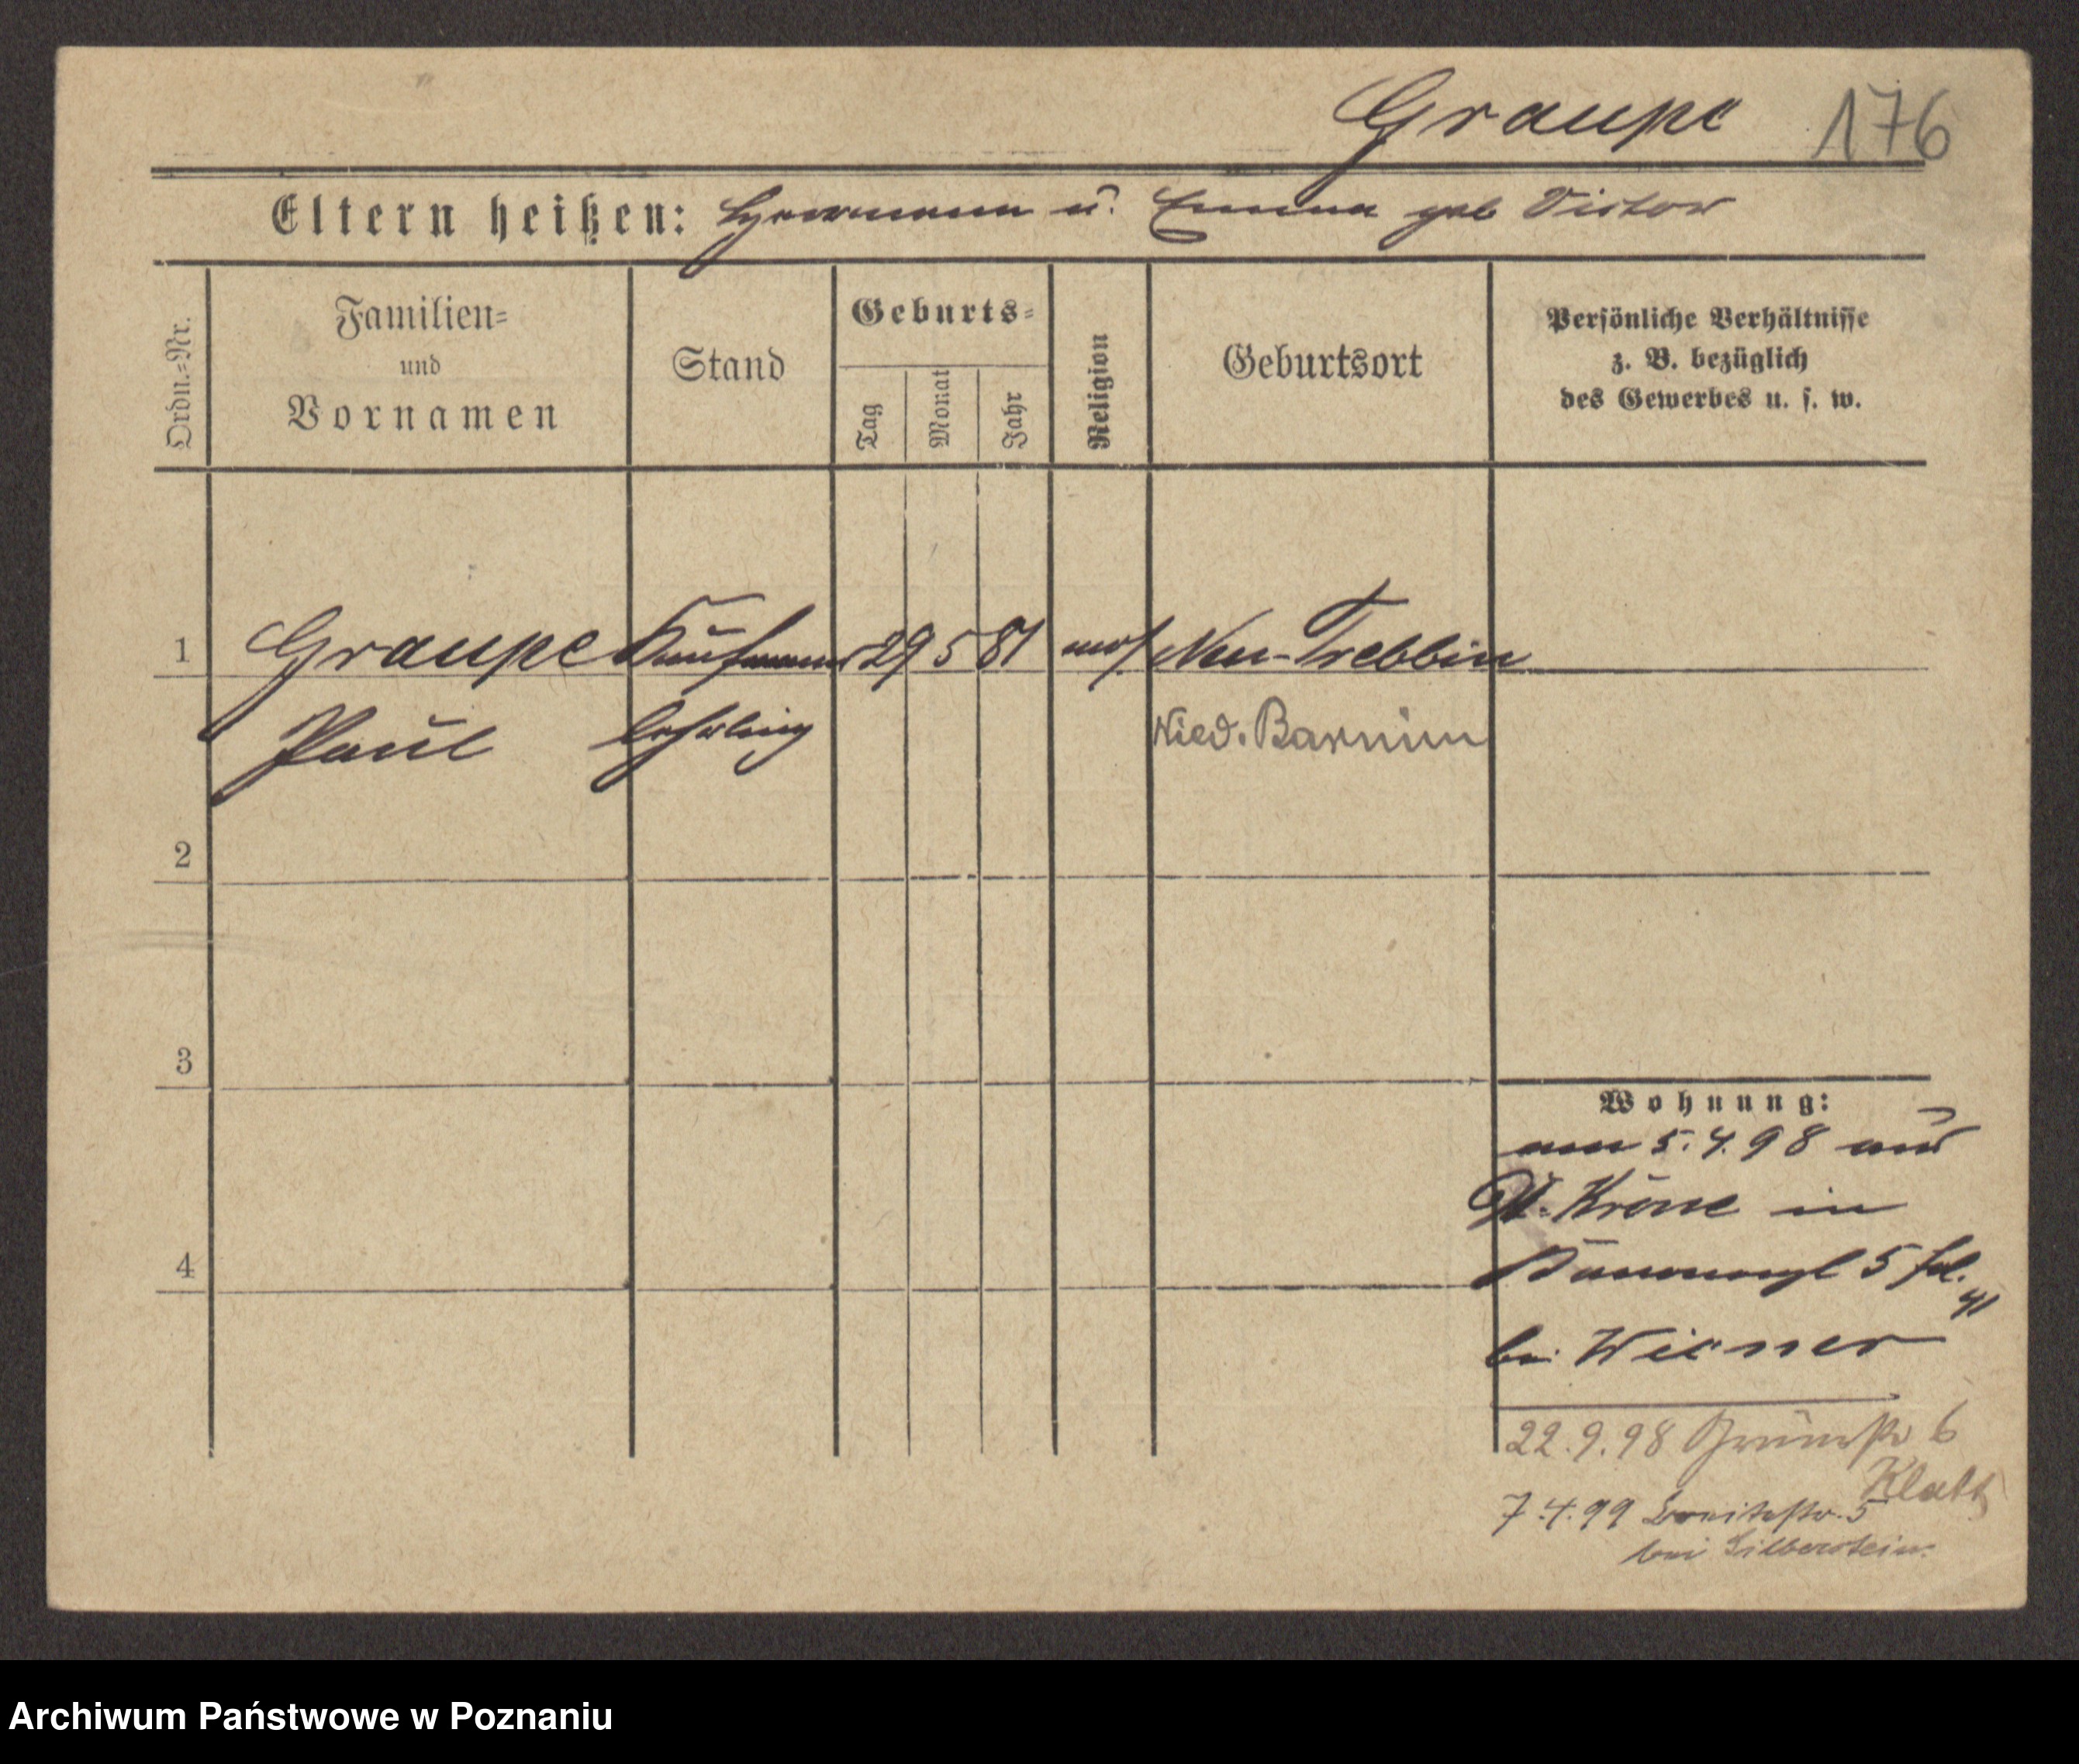 Graupe 176
Eltern heißen: Herrmann u. Emma geb Victor
Ordn.=Nr.
Familien= und Vornamen
Stand
Geburts=
Tag
Monat
Jahr
Religion
Geburtsort
Persönliche Verhältnisse
z. B. bezüglich
des Gewerbes u. s. w.
1 Graupe Kaufmanns 29 5 81 mos. Neu-Trebbin
Paul lehrling Nied. Barnim
2
3
4
Wohnung:
am 5.4.98 aus
Dt. Krone in
5 41
bei Wiener
22.9.98 6
Klatt
7.4.99 Breitestr. 5
bei Silberstein.
Archiwum Państwowe w Poznaniu